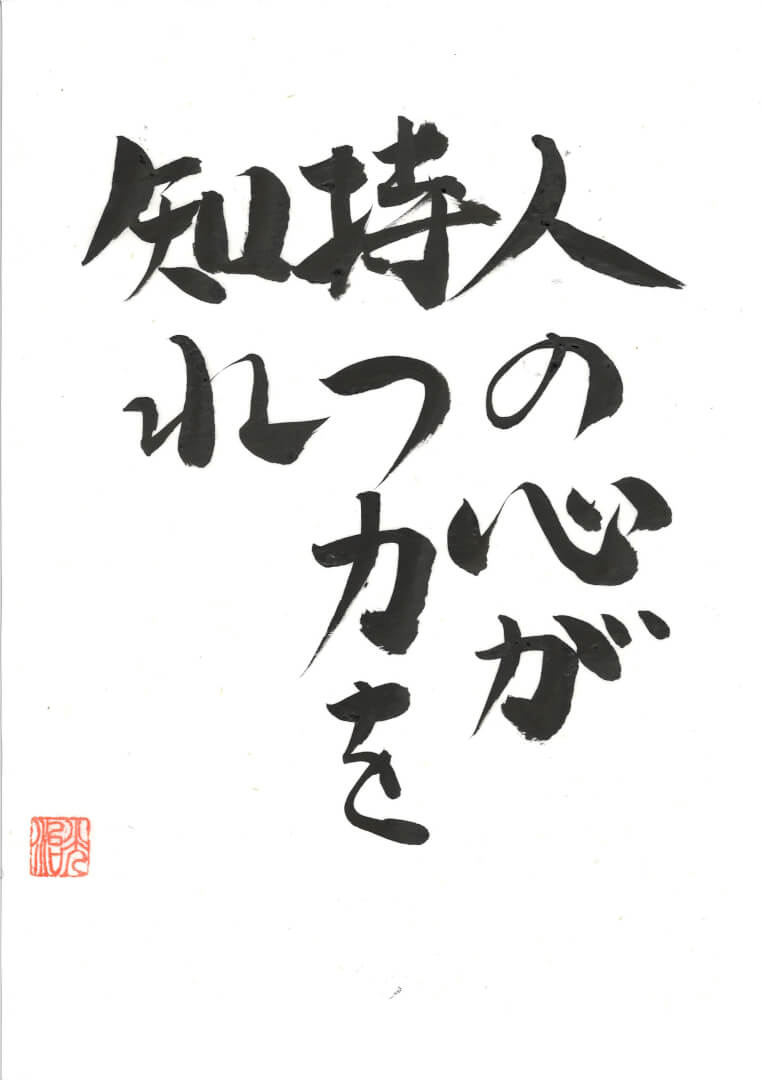 人の心が
持つ力を
知れ